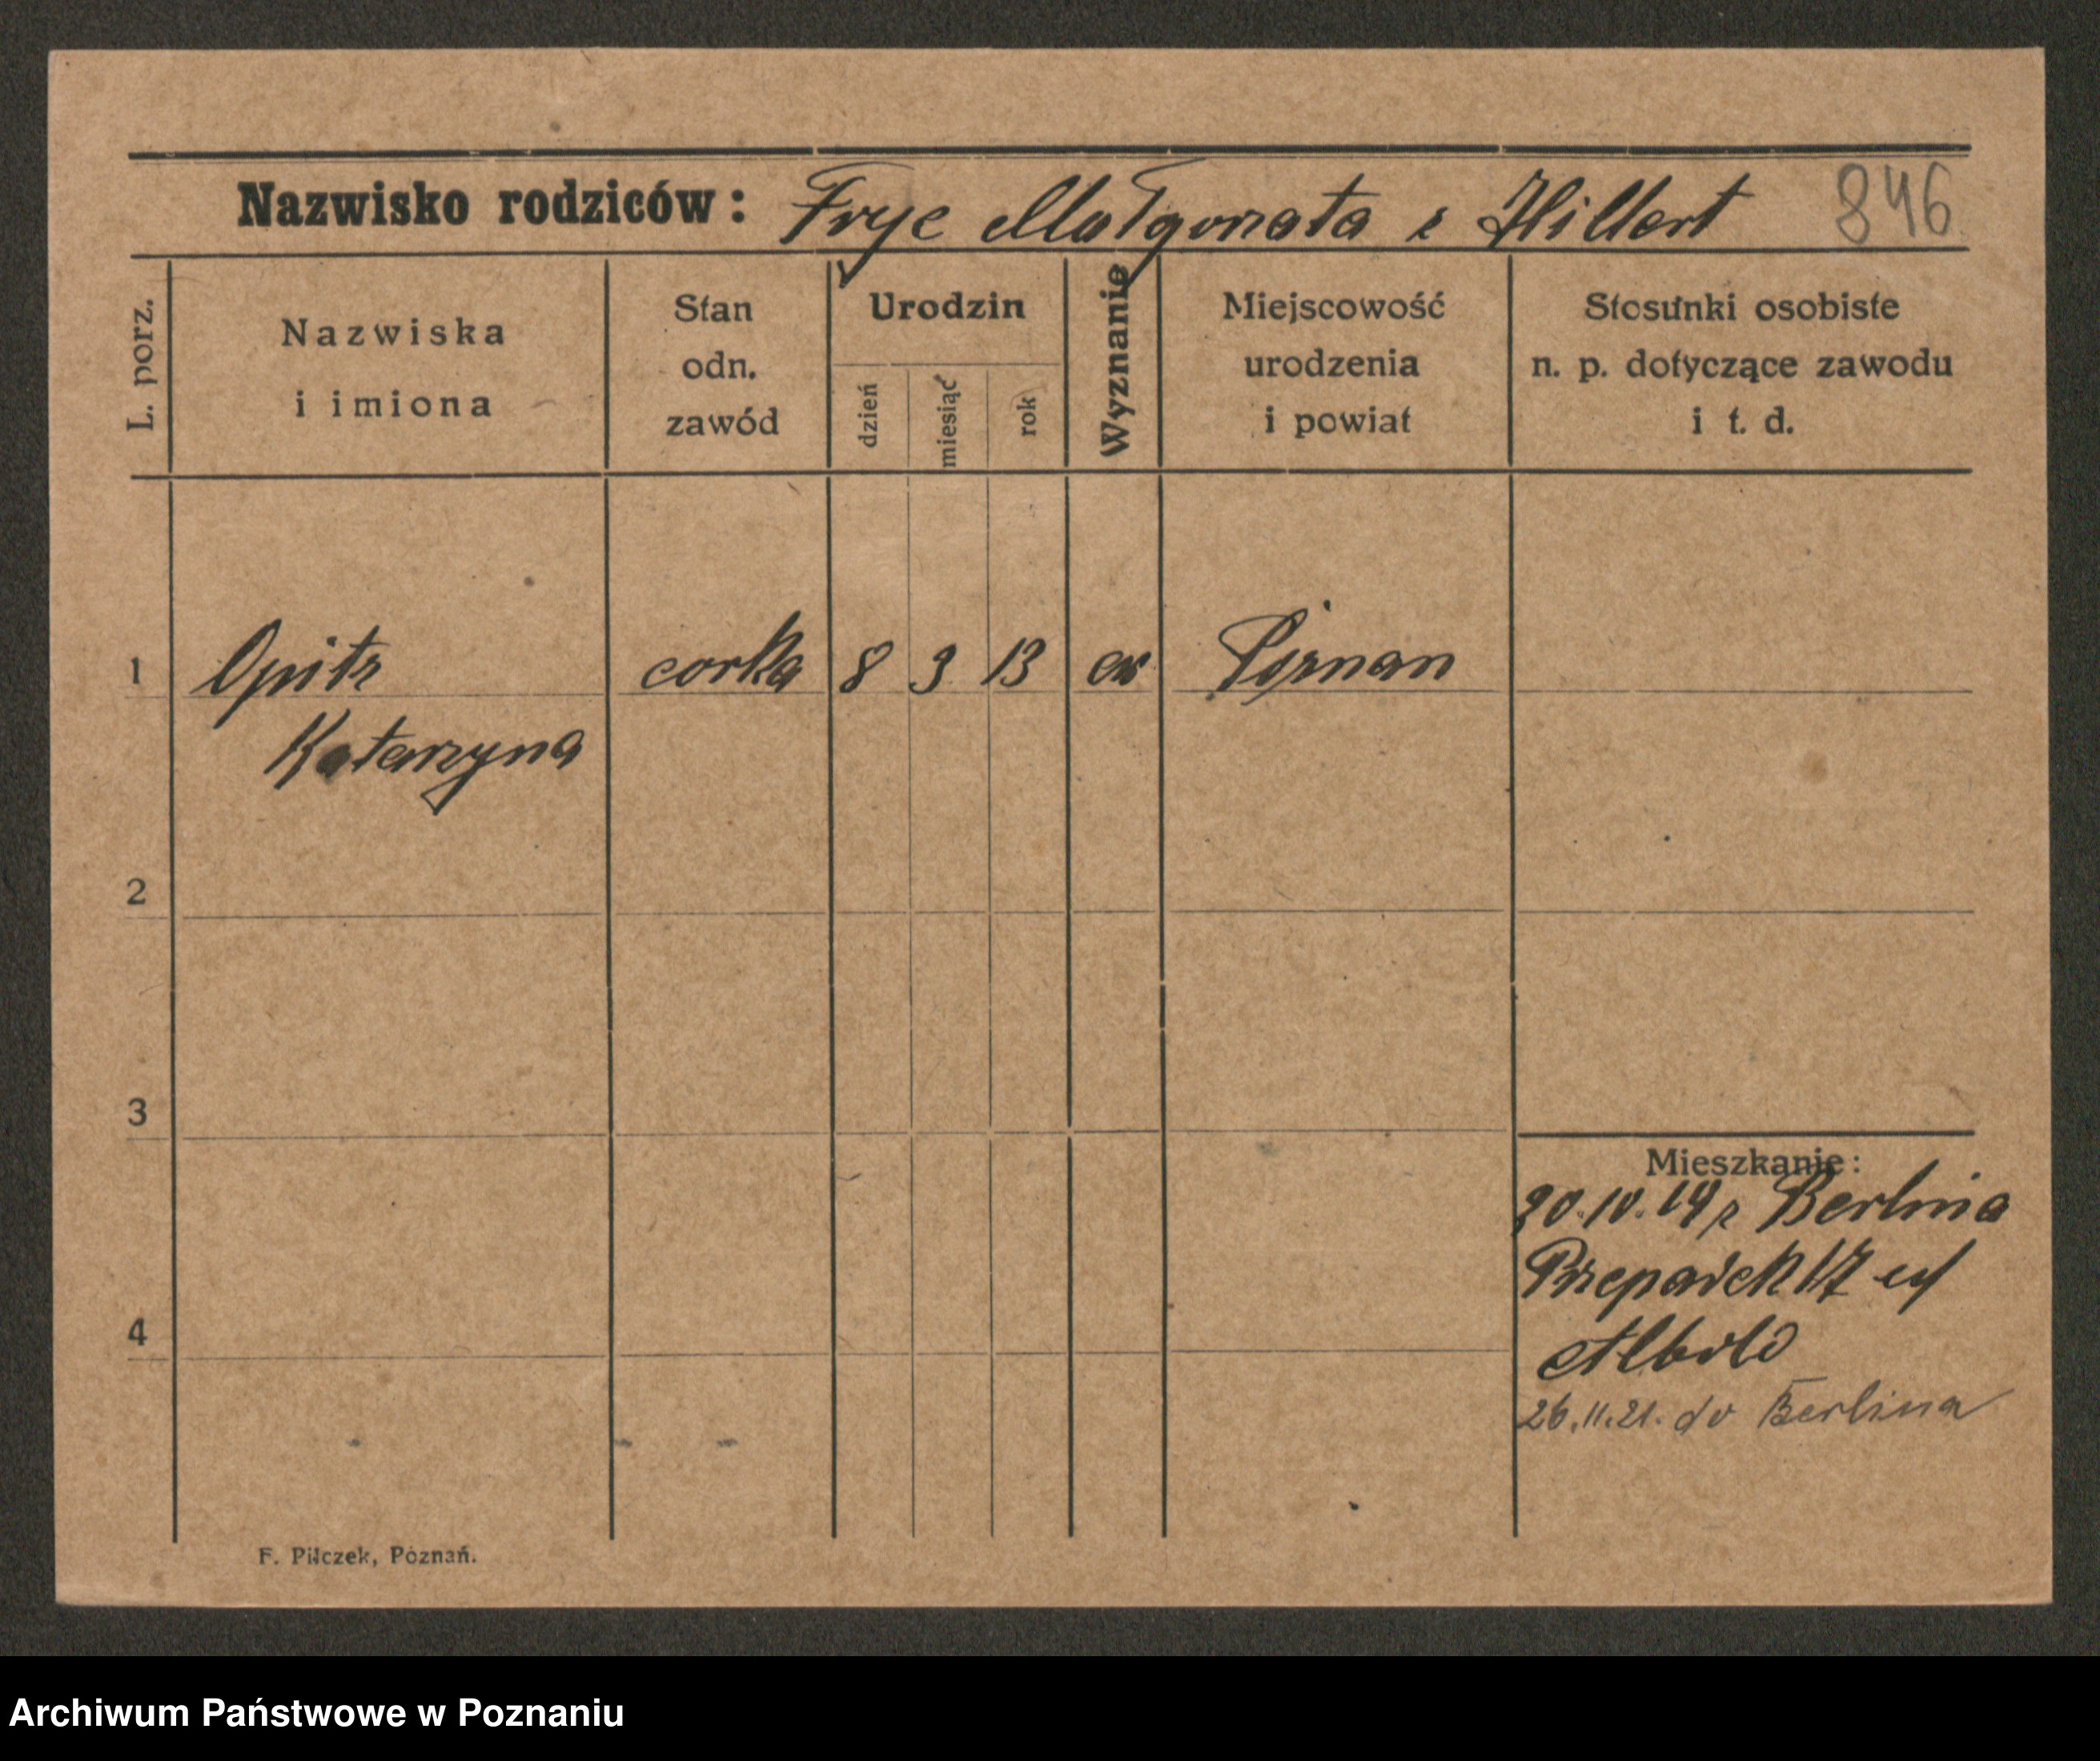 Nazwisko rodziców: Fryc Małgorzata z Hillert 846
L. porz.
Nazwiska i imiona
Stan odn. zawód
Urodzin
dzień
miesiąc
rok
Wyznanie
Miejscowość urodzenia i powiat
Stosunki osobiste n. p. dotyczące zawodu i t. d.
1 Opitz corka 8 3 13 ew Poznan
Katarzyna
2
3
Mieszkanie:
10.19 z Berlina
17
4
26.11.21. do Berlina
F. Pilczek, Poznań.
Archiwum Państwowe w Poznaniu